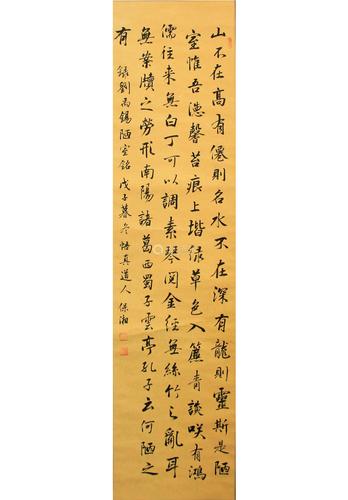 山不在高有僊則名水不在深有龍則靈斯是陋
室惟吾德馨苔痕上堦綠草色入簾青談咲有鴻
儒往来無白丁可以調素琴閱金經無絲竹之亂耳
無案牘之勞形南陽諸葛西蜀子雲亭孔子云何陋之
有 録劉禹錫陋室銘 戊子暮冬悟真道人 保湘